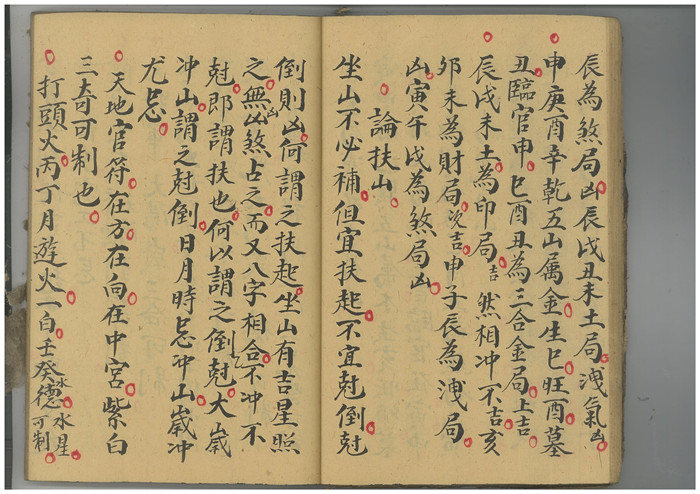 辰為煞局凶辰戌丑未土局洩氣凶
申庚酉辛乾五山属金生巳旺酉墓
丑臨官申巳酉丑為三合金局上吉
辰戌未土為印局吉然相冲不吉亥
卯未為財局次吉申子辰為洩局
凶寅午戌為煞局凶
論扶山
坐山不必補但宜扶起不宜尅倒尅
倒則凶何謂之扶起坐山有吉星照
之無凶煞占之而又八字相合不冲不
尅即謂扶也何以謂之倒尅大嵗
冲山謂之尅倒日月時忌冲山嵗冲
尤忌
天地官符在方在向在中宮紫白
三奇可制也
打頭火丙丁月遊火一白壬癸水德水星可制